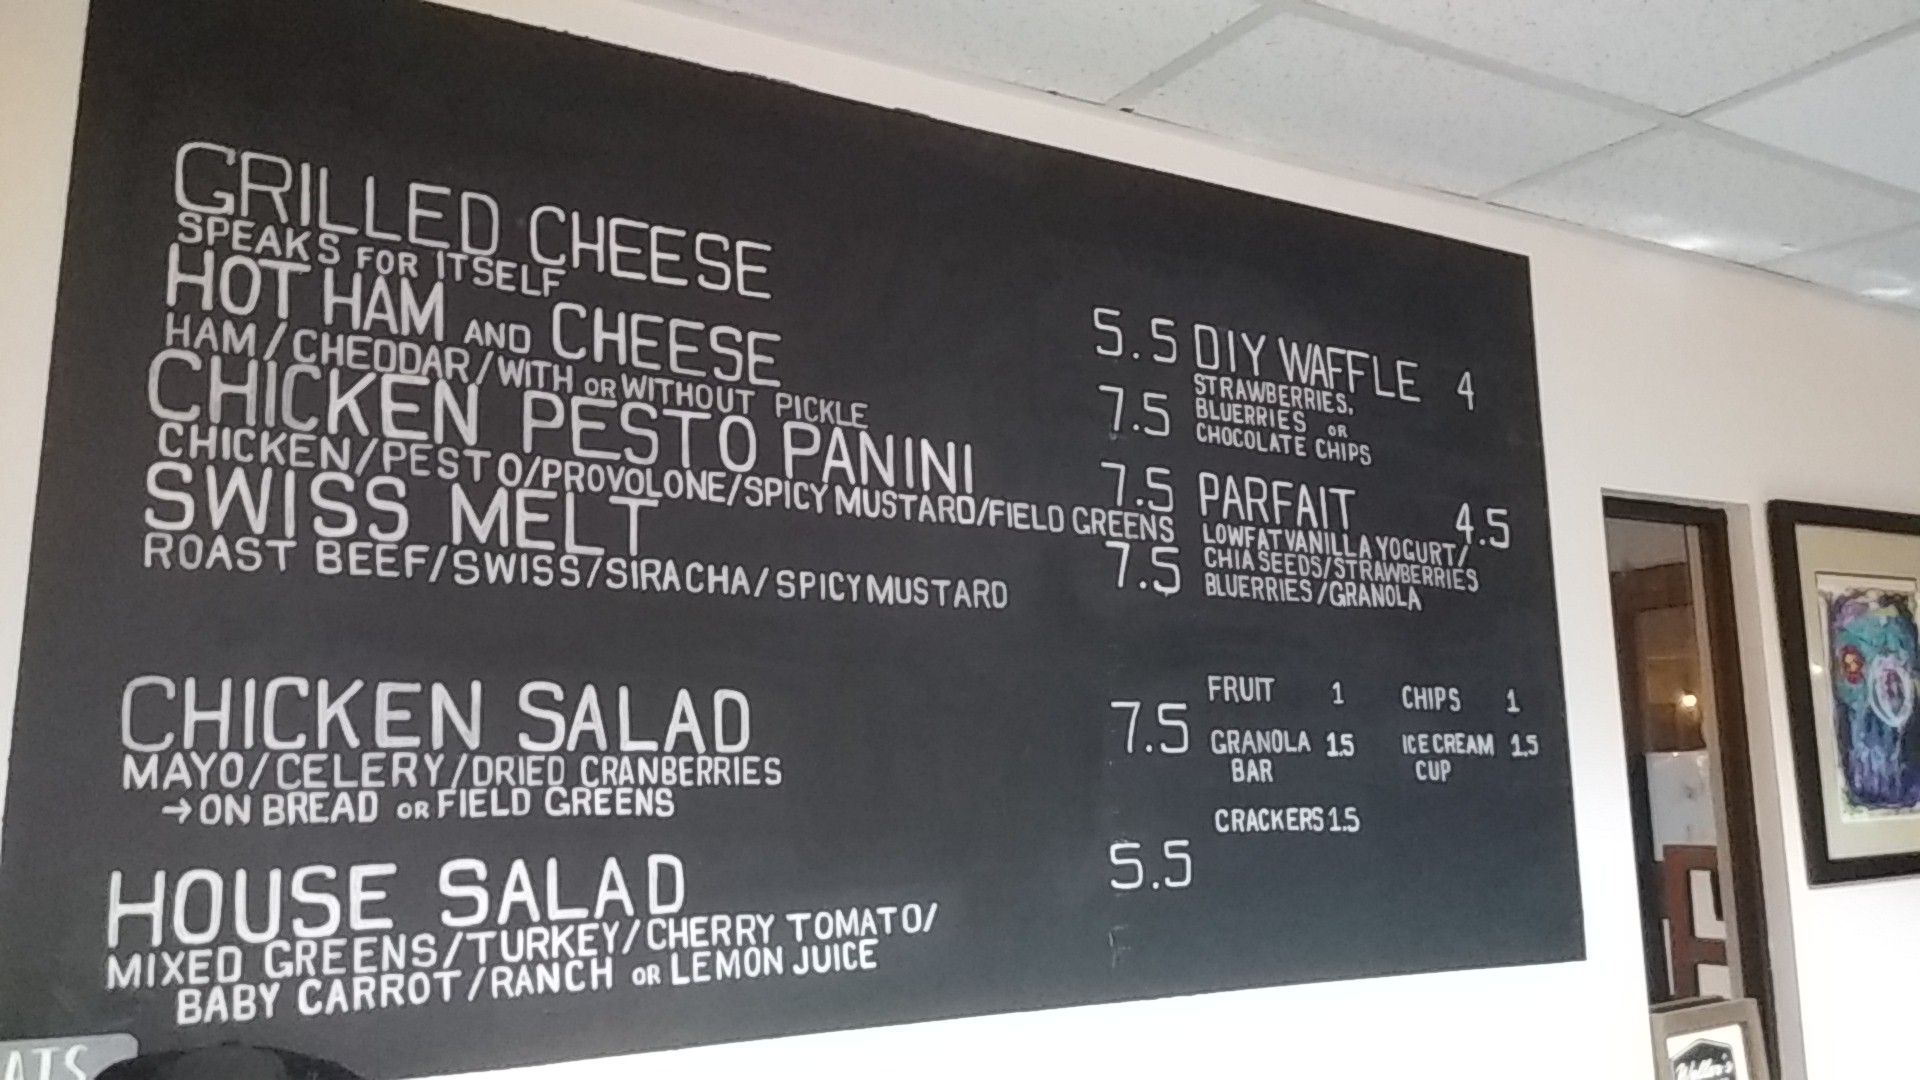 GRILLED CHEESE 5.5
SPEAKS FOR ITSELF
HOT HAM AND CHEESE 7.5
HAM/CHEDDAR/WITH OR WITHOUT PICKLE
CHICKEN PESTO PANINI 7.5
CHICKEN/PESTO/PROVOLONE/SPICY MUSTARD/FIELD GREENS
SWISS MELT 7.5
ROAST BEEF/SWISS/SIRACHA/SPICY MUSTARD
CHICKEN SALAD 7.5
MAYO/CELERY/DRIED CRANBERRIES
→ON BREAD OR FIELD GREENS
HOUSE SALAD 5.5
MIXED GREENS/TURKEY/CHERRY TOMATO/
BABY CARROT/RANCH OR LEMON JUICE
DIY WAFFLE 4
STRAWBERRIES,
BLUERRIES OR
CHOCOLATE CHIPS
PARFAIT 4.5
LOWFAT VANILLA YOGURT/
CHIA SEEDS/STRAWBERRIES
BLUERRIES/GRANOLA
FRUIT 1 CHIPS 1
GRANOLA 1.5 ICE CREAM 1.5
BAR CUP
CRACKERS 1.5
ATS